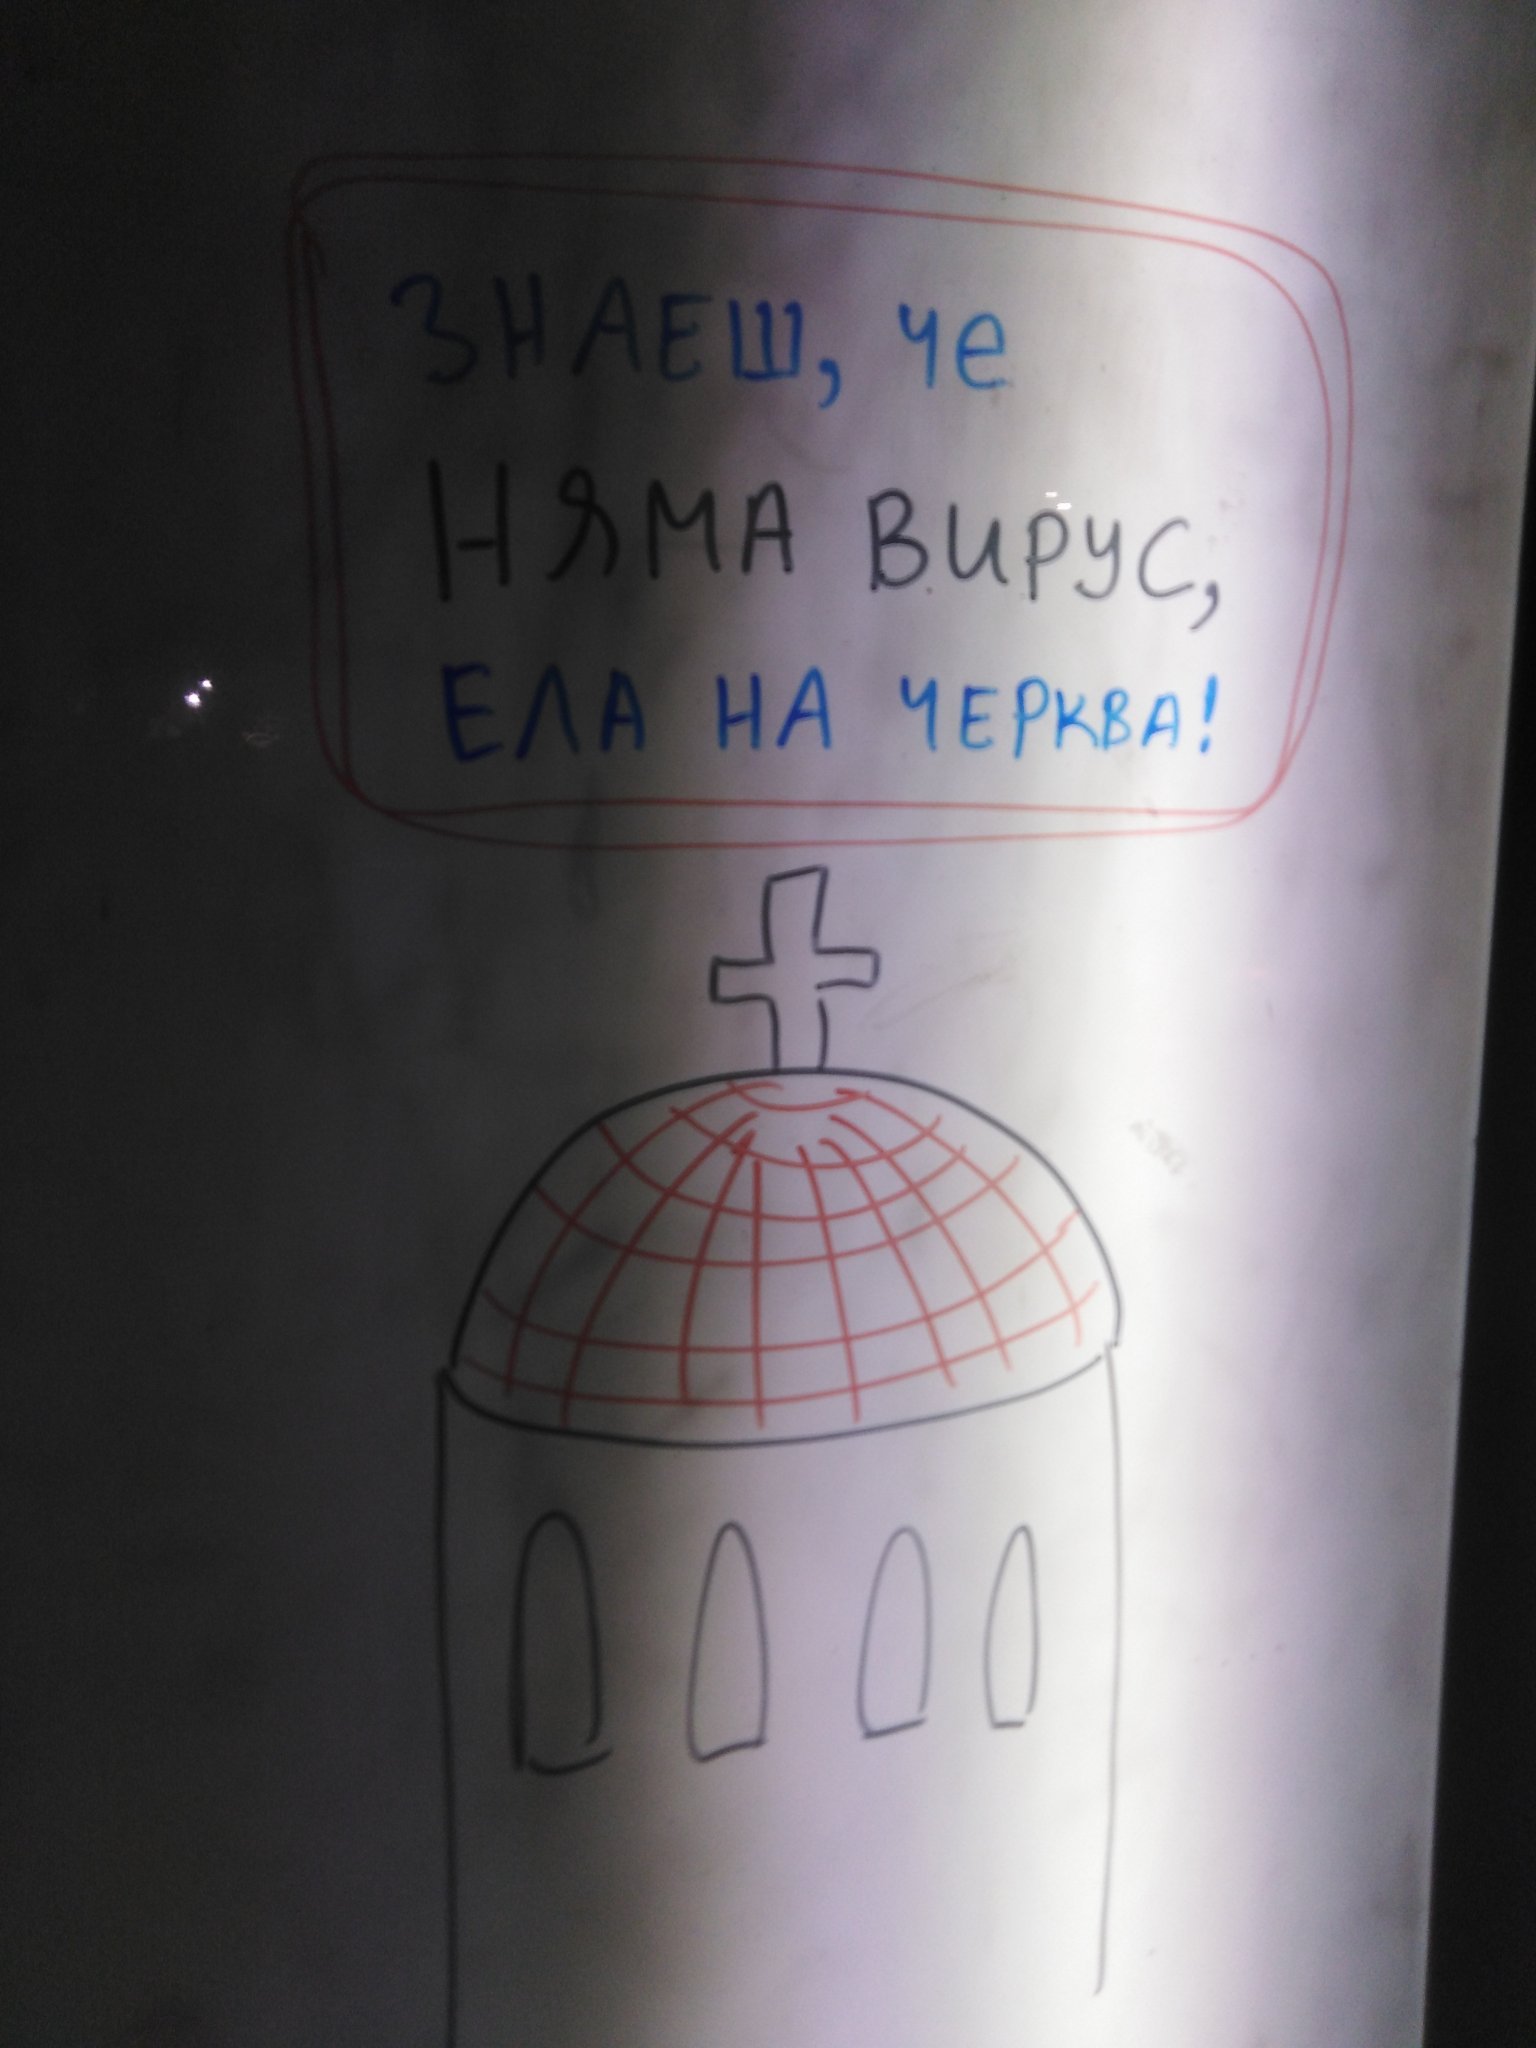 ЗНАЕШ, че
НЯМА ВИРУС,
ЕЛА НА ЧЕРКВА!